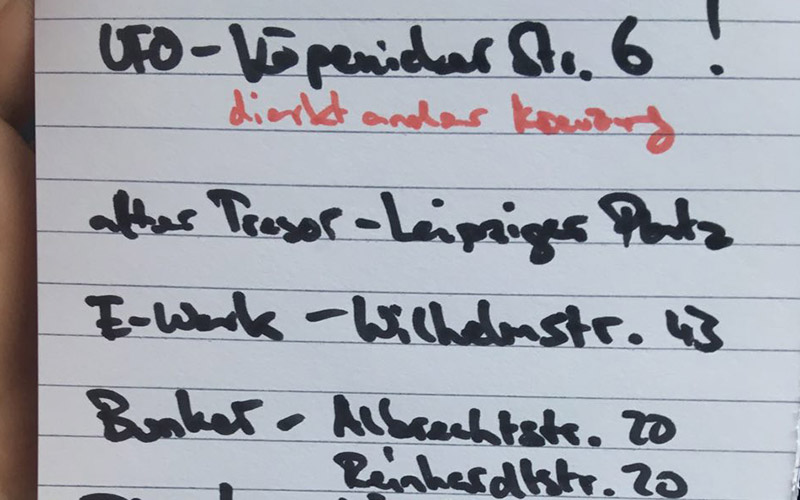 UFO - Köpenicker Str. 6 !
direkt an der Kreuzung
alter Tresor - Leipziger Platz
E-Werk - Wilhelmstr. 43
Bunker - Albrechtstr. 20
Reinhardtstr. 20